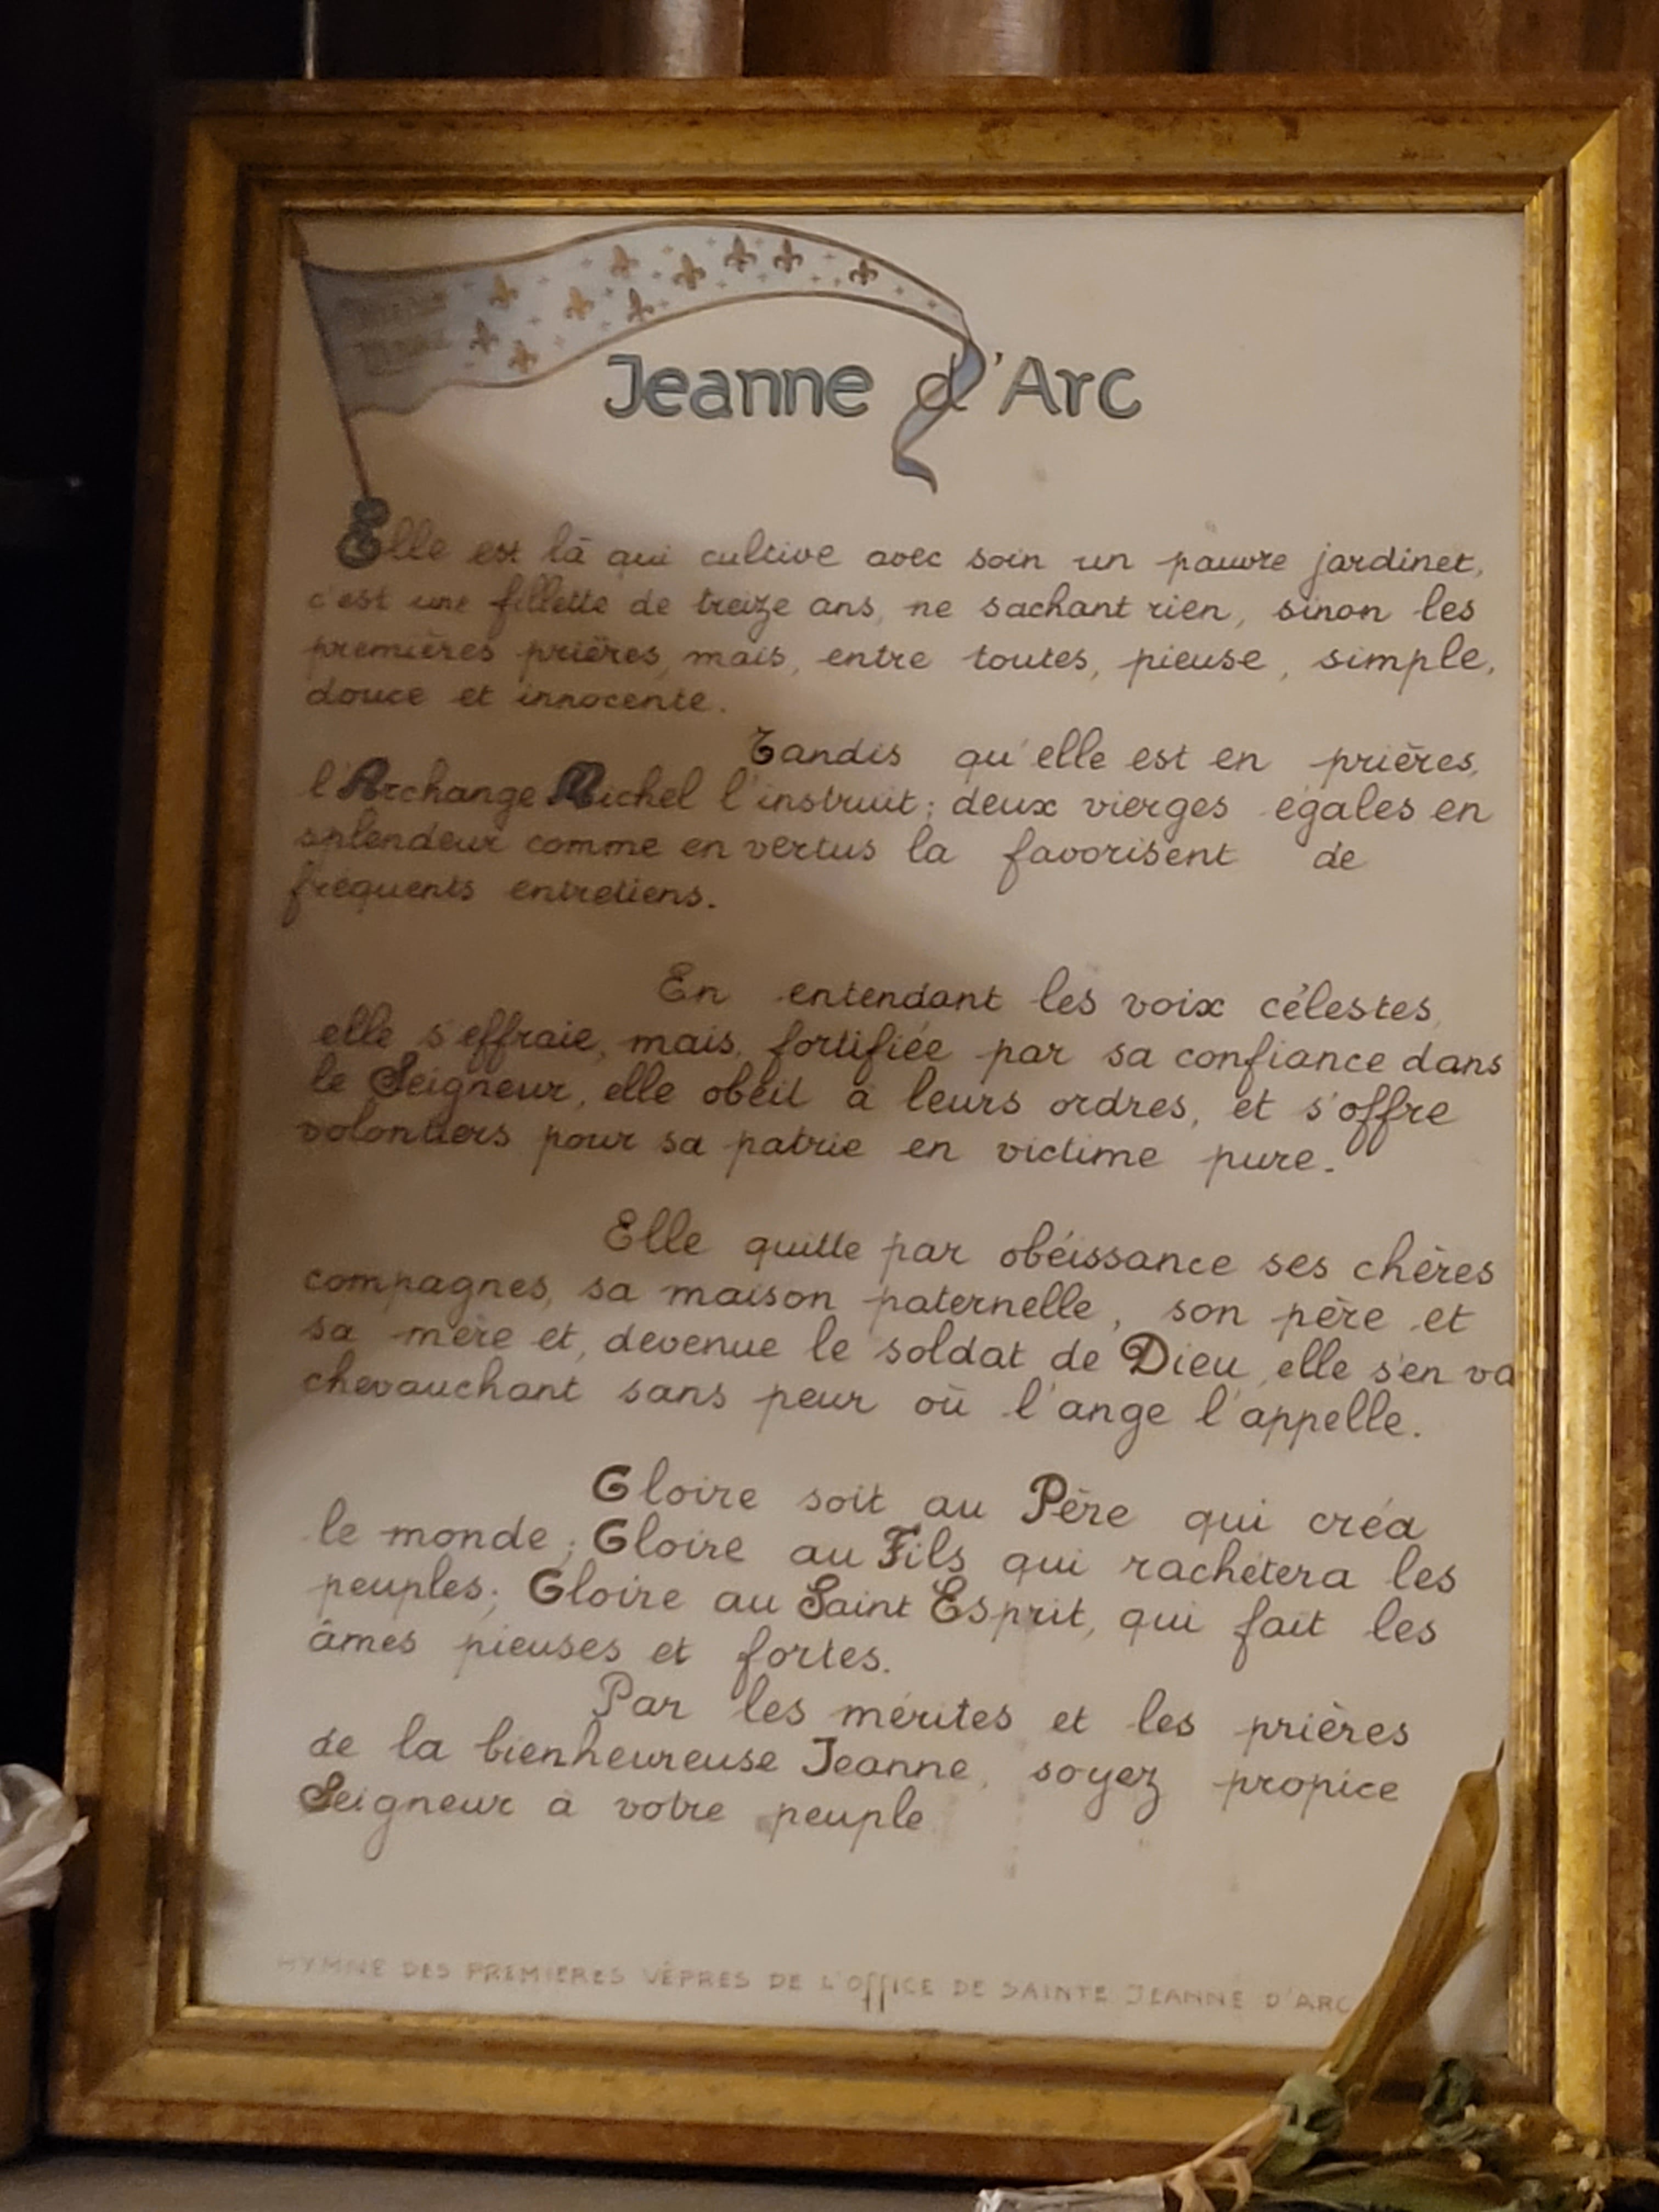 Jeanne d'Arc
Elle est là qui cultive avec soin un pauvre jardinet,
c'est une fillette de treize ans, ne sachant rien, sinon les
premières prières, mais, entre toutes, pieuse, simple,
douce et innocente.
Tandis qu'elle est en prières,
l'Archange Michel l'instruit; deux vierges égales en
splendeur comme en vertus la favorisent de
fréquents entretiens.
En entendant les voix célestes,
elle s'effraie, mais, fortifiée par sa confiance dans
le Seigneur, elle obéit à leurs ordres, et s'offre
volontiers pour sa patrie en victime pure.
Elle quitte par obéissance ses chères
compagnes, sa maison paternelle, son père et
sa mère et, devenue le soldat de Dieu, elle s'en va
chevauchant sans peur où l'ange l'appelle.
Gloire soit au Père qui créa
le monde; Gloire au Fils qui rachètera les
peuples; Gloire au Saint Esprit, qui fait les
âmes pieuses et fortes.
Par les mérites et les prières
de la bienheureuse Jeanne, soyez propice
Seigneur à votre peuple
HYMNE DES PREMIERES VÊPRES DE L'OFFICE DE SAINTE JEANNE D'ARC